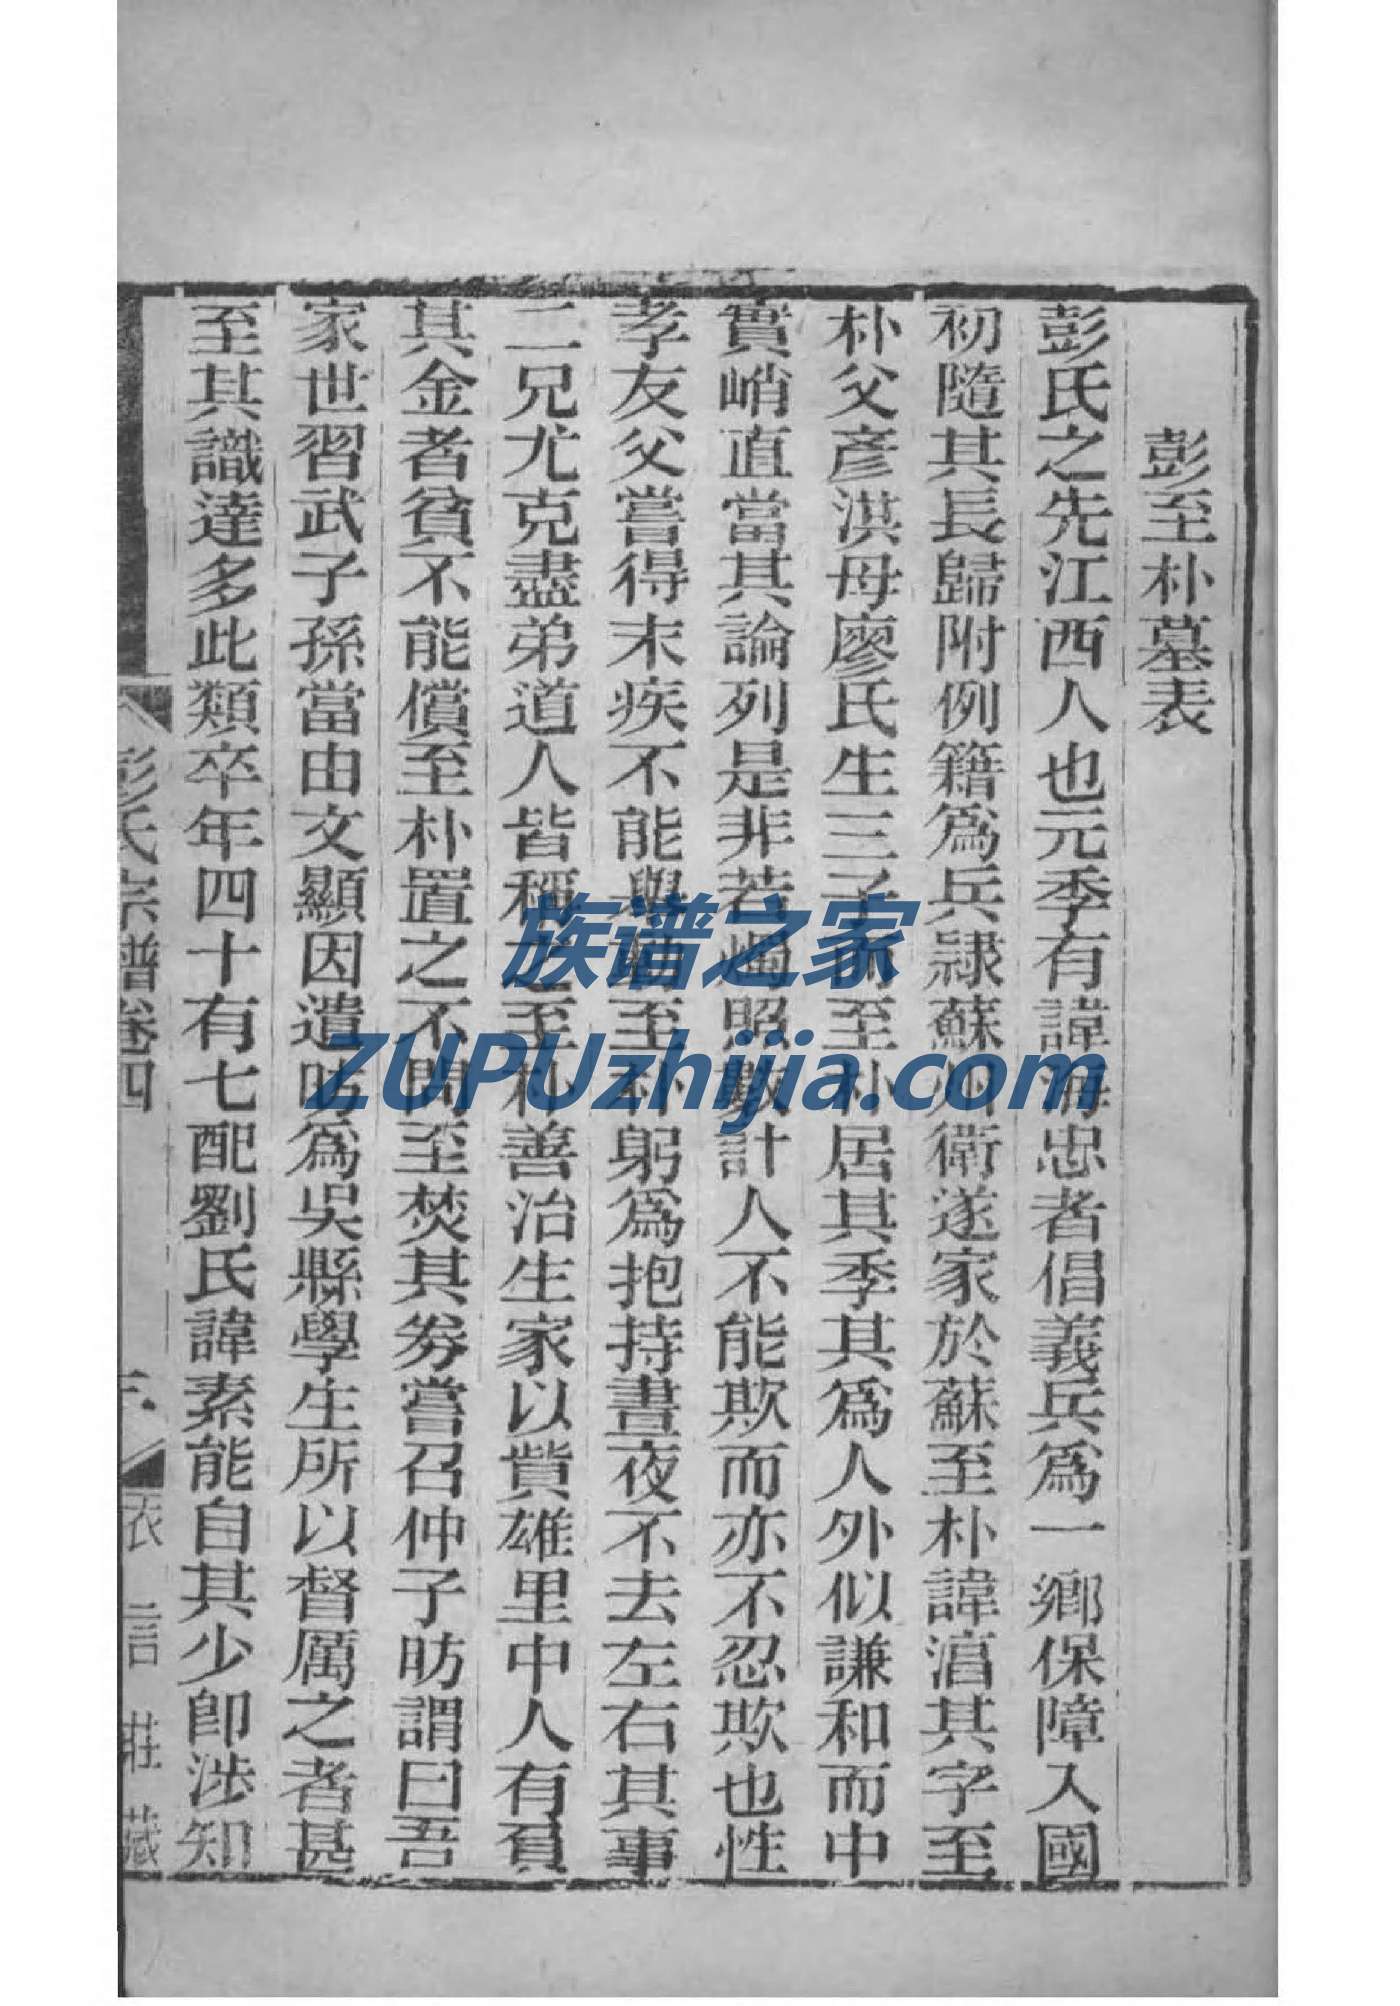 彭至朴墓表
彭氏之先江西人也元季有諱海忠者倡義兵爲一鄉保障入國
初隨其長歸附例籍爲兵隷蘇州衛遂家於蘇至朴諱淐其字至
朴父彥淇母廖氏生三子而至朴居其季其爲人外似謙和而中
實峭直當其論列是非若燭照數計人不能欺而亦不忍欺也性
孝友父嘗得末疾不能與動至朴躬爲抱持晝夜不去左右其事
二兄尤克盡弟道人皆稱之至朴善治生家以貲雄里中人有負
其金者貧不能償至朴置之不問至焚其劵嘗召仲子昉謂曰吾
家世習武子孫當由文顯因遣昉爲吳縣學生所以督厲之者甚
至其識達多此類卒年四十有七配劉氏諱素能自其少卽涉知
彭氏宗譜卷四
衣言莊藏
族谱之家
ZUPUzhijia.com